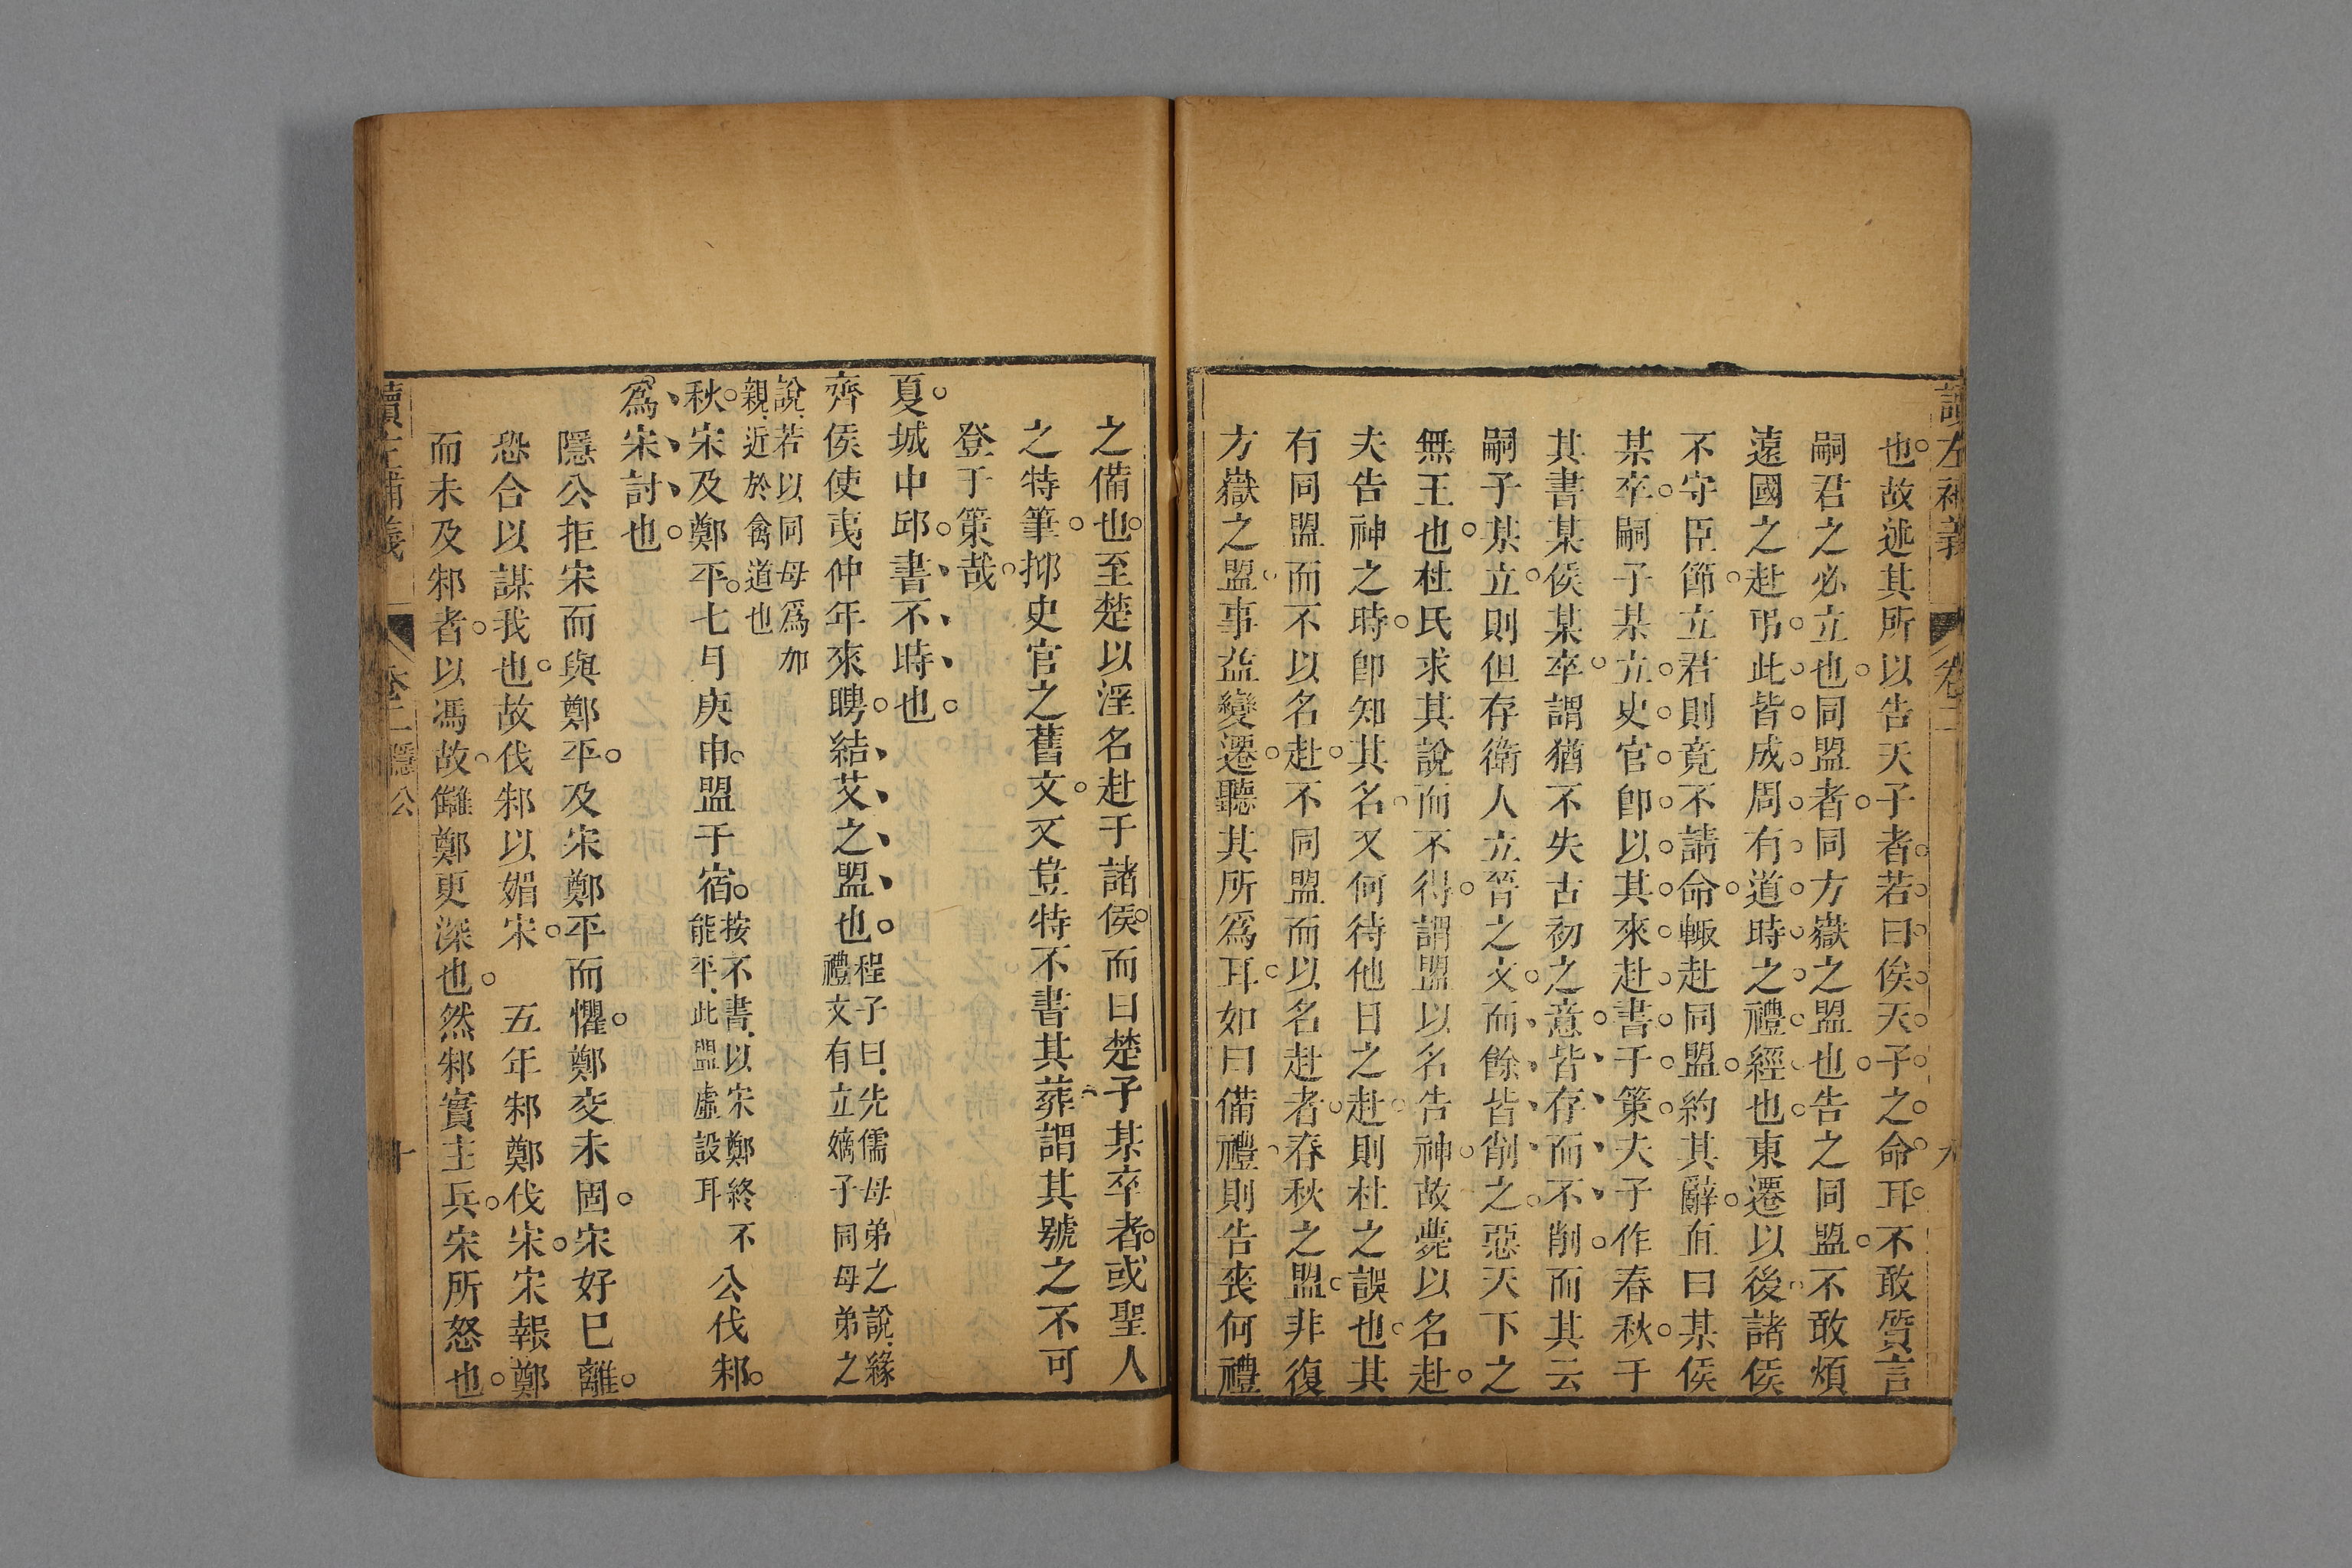 讀左補義
卷二
九
也故述其所以告天子者若曰侯天子之命耳不敢質言
嗣君之必立也同盟者同方嶽之盟也告之同盟不敢煩
遠國之赴弔此皆成周有道時之禮經也東遷以後諸侯
不守臣節立君則竟不請命輙赴同盟約其辭直曰某侯
某卒嗣子某立史官卽以其來赴書于策夫子作春秋于
其書某侯某卒謂猶不失古初之意皆存而不削而其云
嗣子某立則但存衛人立晉之文而餘皆削之惡天下之
無王也杜氏求其說而不得謂盟以名告神故薨以名赴
夫告神之時卽知其名又何待他日之赴則杜之誤也其
有同盟而不以名赴不同盟而以名赴者春秋之盟非復
方嶽之盟事益變遷聽其所爲耳如曰備禮則告喪何禮
之備也至楚以淫名赴于諸侯而曰楚子某卒者或聖人
之特筆抑史官之舊文又豈特不書其葬謂其號之不可
登于策哉
夏城中邱書不時也
齊侯使夷仲年來聘結艾之盟也程子曰先儒母弟之說緣
禮文有立嫡子同母弟之
說若以同母爲加
親近於禽道也
秋宋及鄭平七月庚申盟于宿按不書以宋鄭終不
能平此盟虛設耳
公伐邾
爲宋討也
隱公拒宋而與鄭平及宋鄭平而懼鄭交未固宋好已離
恐合以謀我也故伐邾以媚宋　五年邾鄭伐宋宋報鄭
而未及邾者以馮故讎鄭更深也然邾實主兵宋所怒也
讀左補義
卷二 隱公
十